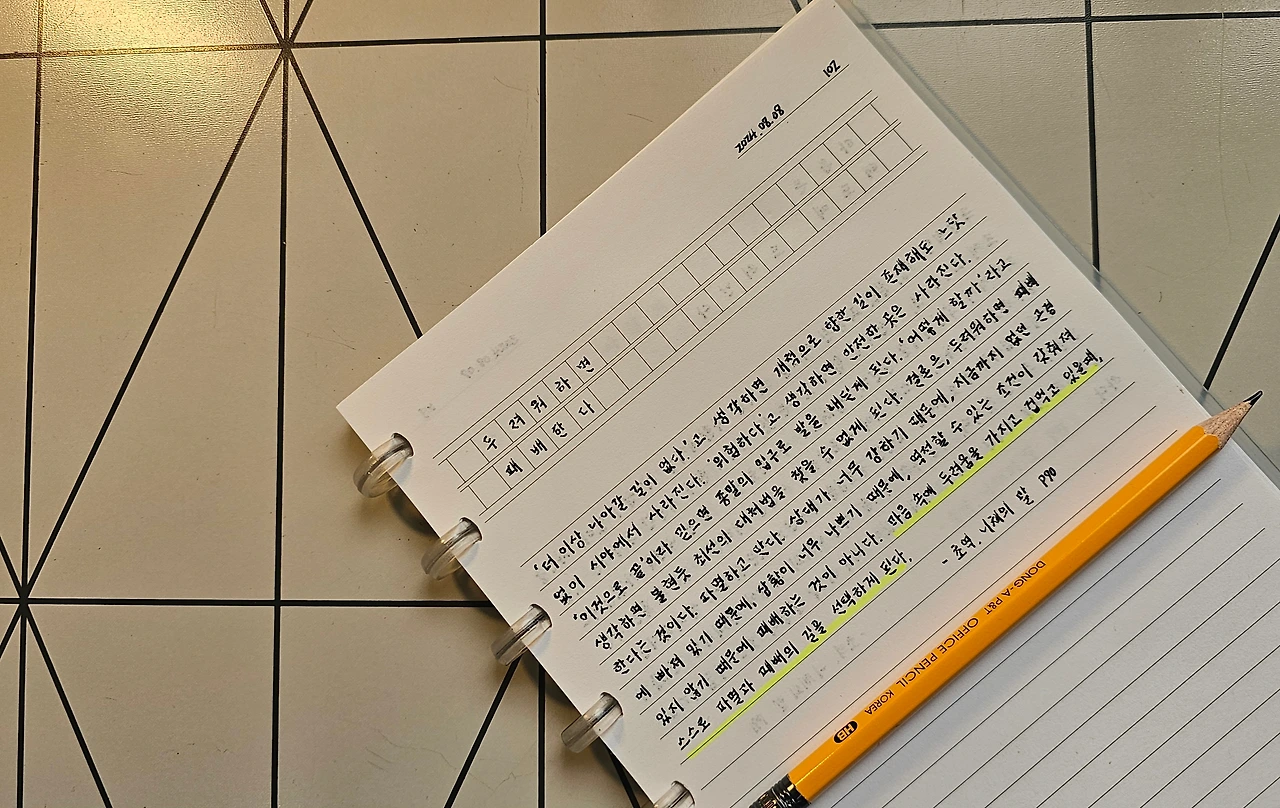 2024. 08. 08
두려워하면
패배한다
'더 이상 나아갈 길이 없다'고 생각하면 개척으로 향한 길이 존재해도 느닷
없이 시야에서 사라진다. '위험하다'고 생각하면 안전한 곳은 사라진다.
'이것으로 끝'이라 믿으면 종말의 입구로 발을 내딛게 된다. '어떻게 할까'라고
생각하면 불현듯 최선의 대처법을 찾을 수 없게 된다. 결론은, 두려워하면 패배
한다는 것이다. 파멸하고 만다. 상대가 너무 강하기 때문에, 지금까지 없던 곤경
에 빠져 있기 때문에, 상황이 너무 나쁘기 때문에, 역전할 수 있는 조건이 갖춰져
있지 않기 때문에 패배하는 것이 아니다. 마음 속에 두려움을 가지고 겁먹고 있을때,
스스로 파멸과 패배의 길을 선택하게 된다.
- 초역 니체의 말 P90
DONG-A P&T OFFICE PENCIL KOREA HB